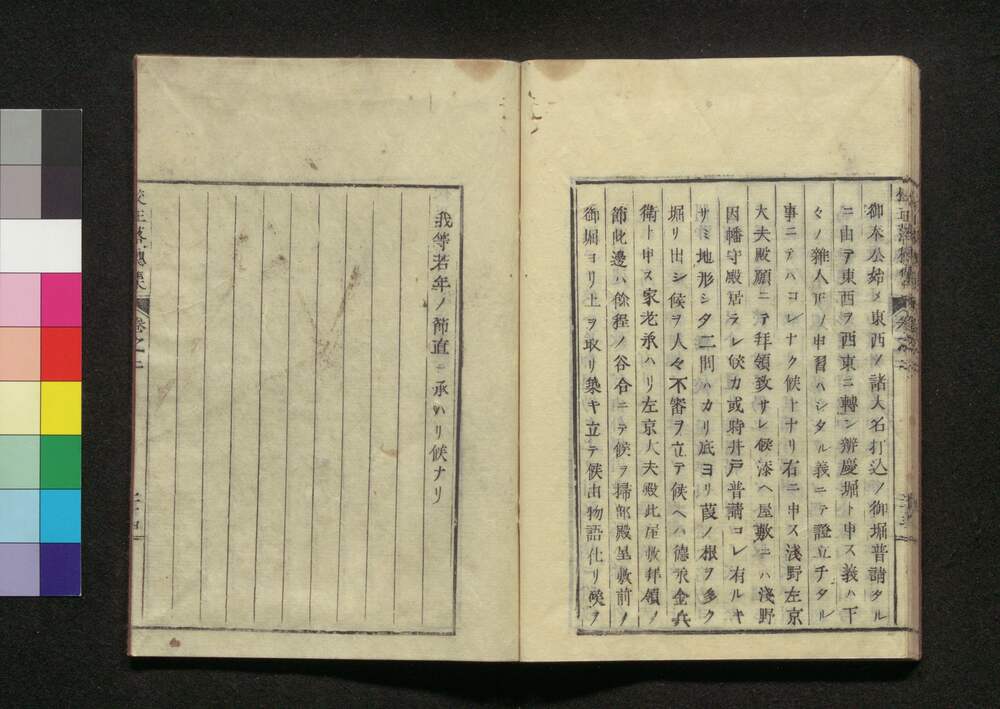 御本公始メ東西ノ諸大名打込ノ御堀普請タル
ニ由テ東西ヲ西東ニ轉シ辨慶堀ト申ス義ハ下
々ノ雜人𪜈ノ申習ハシタル義ニテ證立チタル
事ニテハコレナク候トナリ右ニ申ス淺野左京
大夫殿願ニテ拜領致サレ候漆ヘ屋敷ニハ淺野
因幡守殿居ラレ候カ或時井戸普請コレ有ルキ
サミ地形シタ二間ハカリ底ヨリ葭ノ根ヲ多ク
堀リ出シ候ヲ人々不審ヲ立テ候ヘハ德永金兵
衛ト申ス家老承ハリ左京大夫殿此屋敷拜領ノ
節此邊ハ餘程ノ谷合ニテ候ヲ掃部殿屋敷前ノ
御堀ヨリ土ヲ取リ築キ立テ候由物語仕リ候ヲ
我等若年ノ節直ニ承ハリ候ナリ
校正落穗集
卷之二
二十四